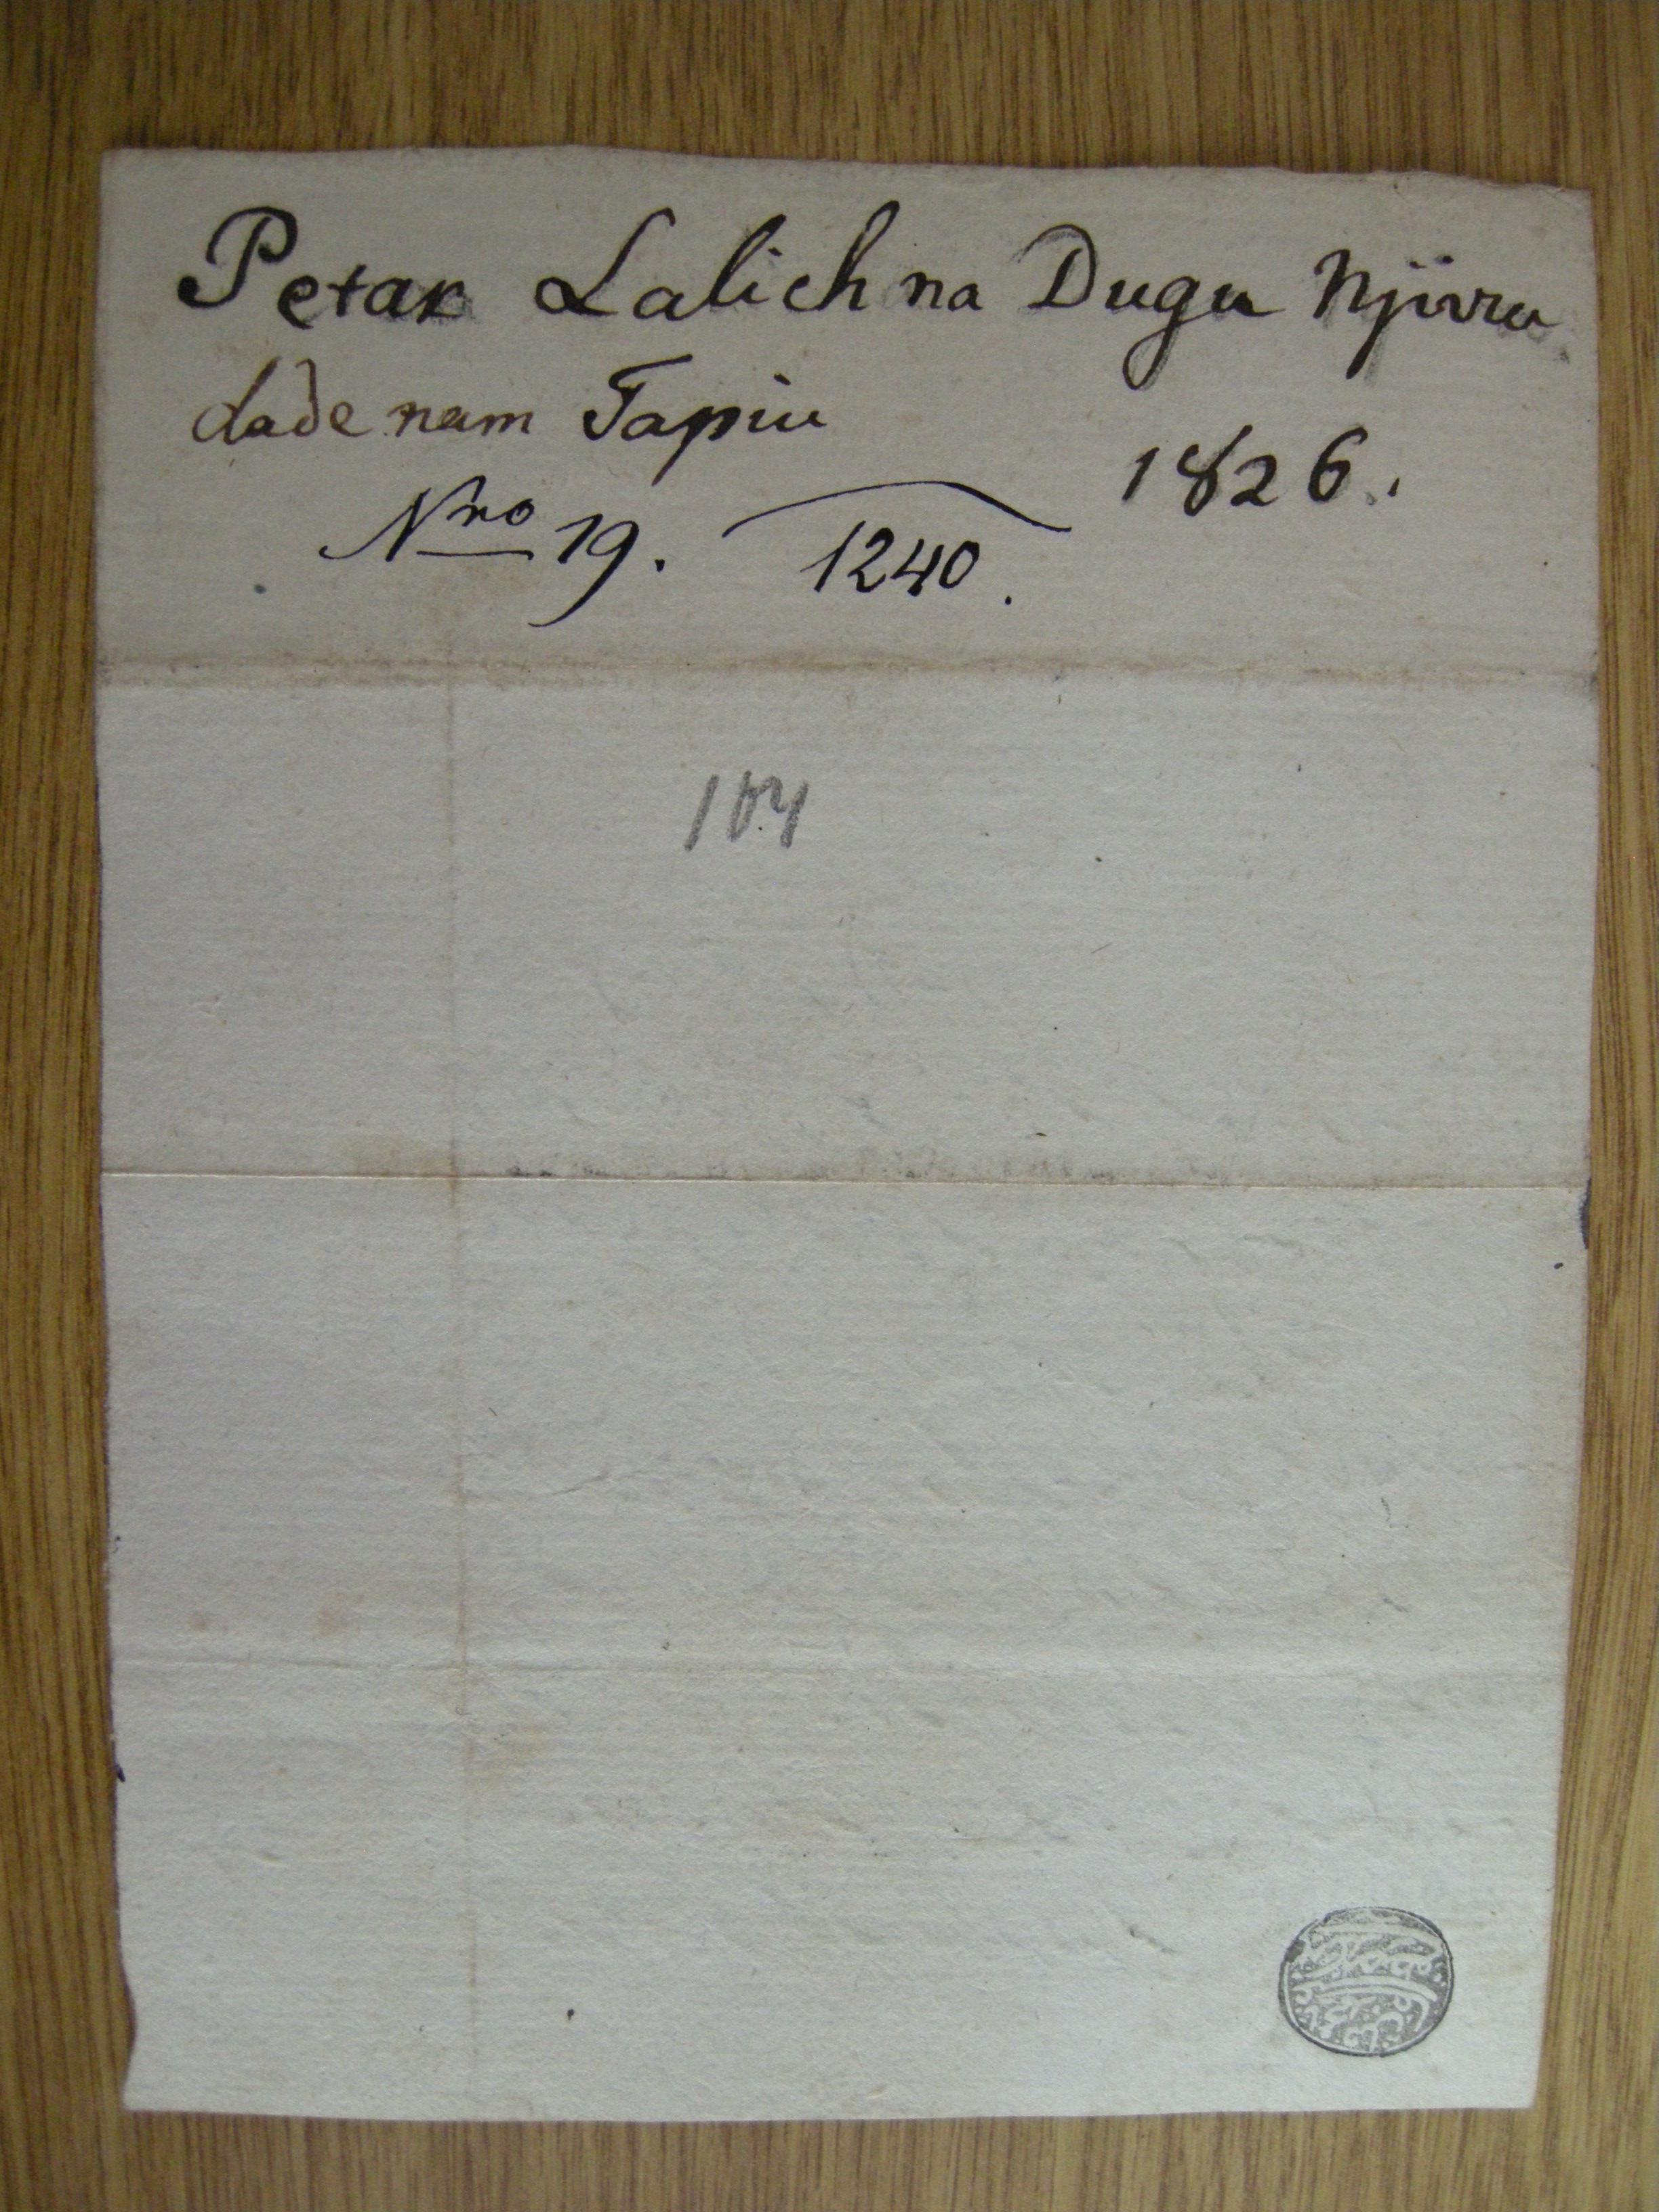 Petar Lalich na Dugu Njivu
dade nam Tapiu
1826.
Nro 19. 1240.
104